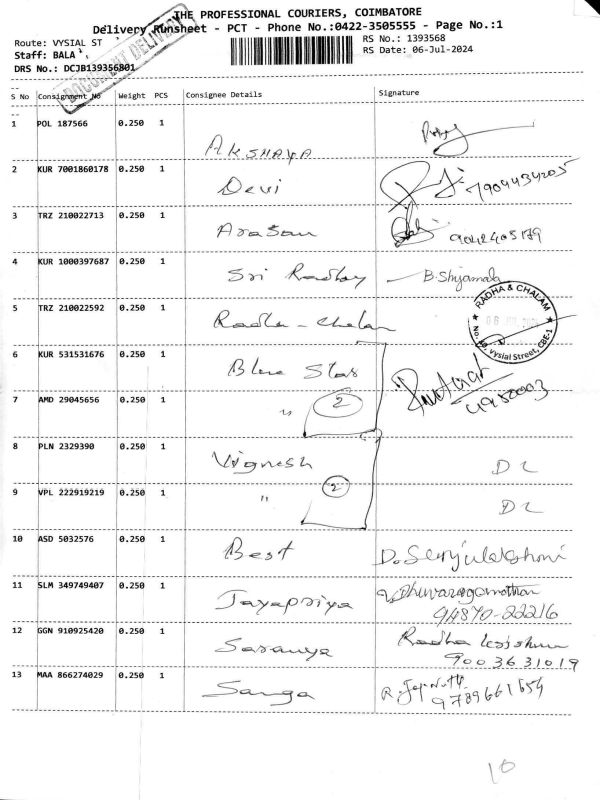 THE PROFESSIONAL COURIERS, COIMBATORE
Delivery Runsheet - PCT - Phone No.:0422-3505555 - Page No.:1
Route: VYSIAL ST
RS No.: 1393568
Staff: BALA
RS Date: 06-Jul-2024
DRS No.: DCJB139356801
DOCUMENT DELIVERY
S No Consignment No Weight PCS Consignee Details Signature
1 POL 187566 0.250 1 AKSHAYA
2 KUR 7001860178 0.250 1 Devi 7904434205
3 TRZ 210022713 0.250 1 Arasan 9042405179
4 KUR 1000397687 0.250 1 Sri Radhey B. Shyamala
5 TRZ 210022592 0.250 1 Radha - Chalan
RADHA & CHALAM
Vysial Street, CBE-1
6 KUR 531531676 0.250 1 Blue Star
7 AMD 29045656 0.250 1 " 2
8 PLN 2329390 0.250 1 Vignesh D L
9 VPL 222919219 0.250 1 " 2 D L
10 ASD 5032576 0.250 1 Best
11 SLM 349749407 0.250 1 Jayapriya
94870-22216
12 GGN 910925420 0.250 1 Saranya Radha
9003631019
13 MAA 866274029 0.250 1 Sanga
9789661654
10